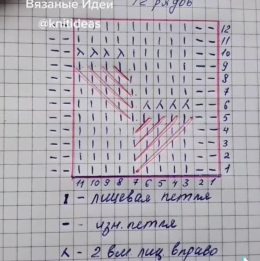 Вязаные Идеи
@knitideas
12 рядов
12
11
10
9
8
7
6
5
4
3
2
1
11 10 9 8 7 6 5 4 3 2 1
I - лицевая петля
- - изн. петля
⅄ - 2 вм лиц вправо